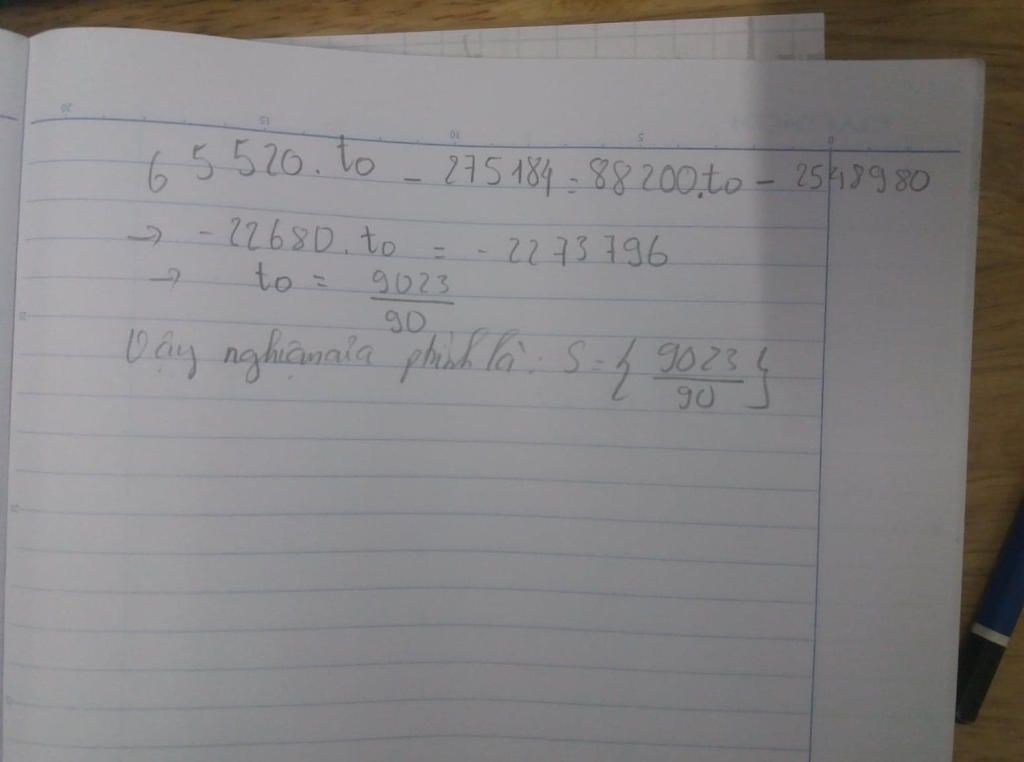 65520.to - 275184 = 88200.to - 2548980
→ -22680.to = -2273796
→ to = 9023/90
Vậy nghiệm của phình là: S = { 9023/90 }